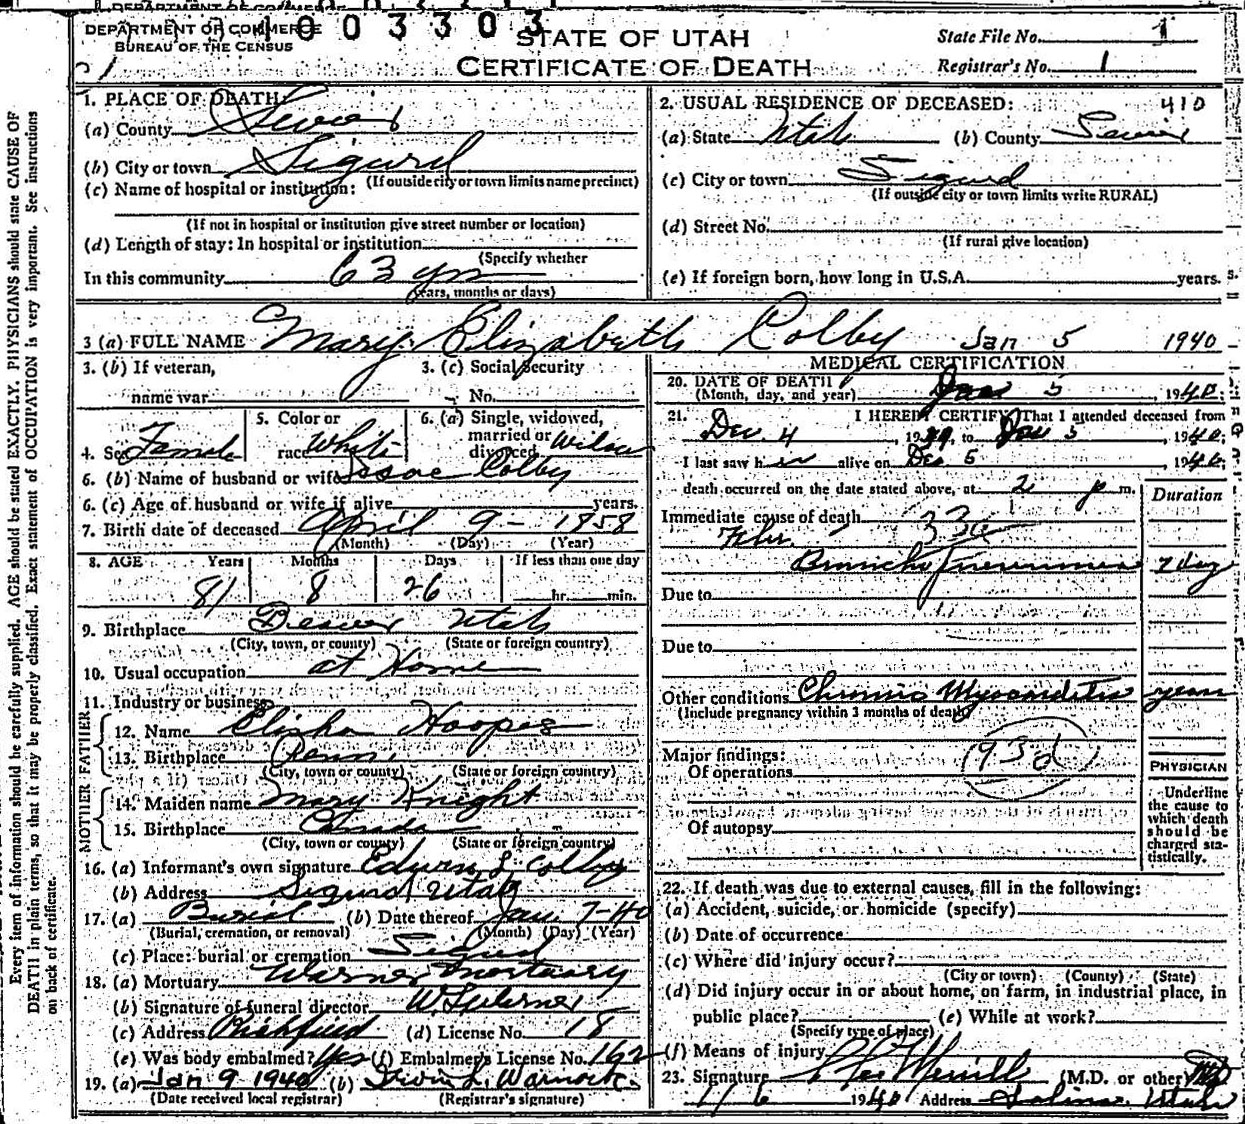 DEPARTMENT OF COMMERCE
BUREAU OF THE CENSUS
0 0 3 3 0 3
STATE OF UTAH
CERTIFICATE OF DEATH
State File No. 1
Registrar's No. 1
1. PLACE OF DEATH:
(a) County Sevier
(b) City or town Sigurd
(If outside city or town limits name precinct)
(c) Name of hospital or institution:
(If not in hospital or institution give street number or location)
(d) Length of stay: In hospital or institution
(Specify whether
In this community 63 yrs
years, months or days)
2. USUAL RESIDENCE OF DECEASED: 410
(a) State Utah (b) County Sevier
(c) City or town Sigurd
(If outside city or town limits write RURAL)
(d) Street No.
(If rural give location)
(e) If foreign born, how long in U.S.A. years.
3 (a) FULL NAME Mary Elizabeth Colby Jan 5 1940
3. (b) If veteran,
name war
3. (c) Social Security
No.
4. Sex Female
5. Color or
race White
6. (a) Single, widowed,
married or
divorced Widow
6. (b) Name of husband or wife Isaac Colby
6. (c) Age of husband or wife if alive years.
7. Birth date of deceased April 9 - 1858
(Month) (Day) (Year)
8. AGE Years Months Days If less than one day
81 8 26 hr. min.
9. Birthplace Beaver Utah
(City, town, or county) (State or foreign country)
10. Usual occupation at Home
11. Industry or business
FATHER
12. Name Elisha Hoopes
13. Birthplace Penn.
(City, town or county) (State or foreign country)
MOTHER
14. Maiden name Mary Knight
15. Birthplace Canada
(City, town or county) (State or foreign country)
16. (a) Informant's own signature Edwin L Colby
(b) Address Sigurd Utah
17. (a) Burial (b) Date thereof Jan. 7-40
(Burial, cremation, or removal) (Month) (Day) (Year)
(c) Place: burial or cremation Sigurd
18. (a) Mortuary Warner Mortuary
(b) Signature of funeral director
(c) Address Richfield (d) License No. 18
(e) Was body embalmed? Yes (f) Embalmer's License No. 162
19. (a) Jan 9 1940 (b) Irvin L. Warnock
(Date received local registrar) (Registrar's signature)
MEDICAL CERTIFICATION
20. DATE OF DEATH Jan 5, 1940
(Month, day, and year)
21. I HEREBY CERTIFY That I attended deceased from
Dec. 4, 1939, to Jan 5, 1940;
I last saw her alive on Dec 5, 1940;
death occurred on the date stated above, at 2 p m.
Duration
Immediate cause of death 33a
Broncho Pneumonia 7 day
Due to
Due to
Other conditions Chronic Myocarditis years
(Include pregnancy within 3 months of death)
93d
Major findings:
Of operations
Of autopsy
PHYSICIAN
Underline
the cause to
which death
should be
charged sta-
tistically.
22. If death was due to external causes, fill in the following:
(a) Accident, suicide, or homicide (specify)
(b) Date of occurrence
(c) Where did injury occur?
(City or town) (County) (State)
(d) Did injury occur in or about home, on farm, in industrial place, in
public place? (e) While at work?
(Specify type of place)
(f) Means of injury
23. Signature Merrill (M.D. or other) MD
1/6 1940 Address Salina Utah
Every item of information should be carefully supplied. AGE should be stated EXACTLY. PHYSICIANS should state CAUSE OF
DEATH in plain terms, so that it may be properly classified. Exact statement of OCCUPATION is very important. See instructions
on back of certificate.